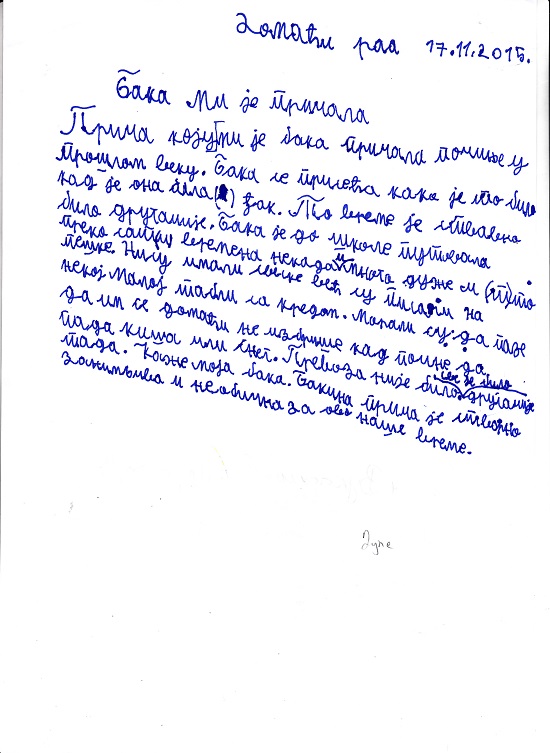 Домаћи раа 17.11.2015.
Бака ми је причала
Прича којуми је бака причала почиње у
прошлом веку. Бака се присећа како је то било
кад је она била ђак. То време је стварно
било другачије. Бака је до школе путовала
преко сат времена некада и много дуже и (то)
пешке. Нису имали свеске већ су писали на
некој малој табли са кредом. Морали су да пазе
да им се домаћи не избрише кад почне да
пада киша или снег. Превоза није било све је било другачије
тада. Каже моја бака. Бакина прича је стварно
занимљива и необична за ово наше време.